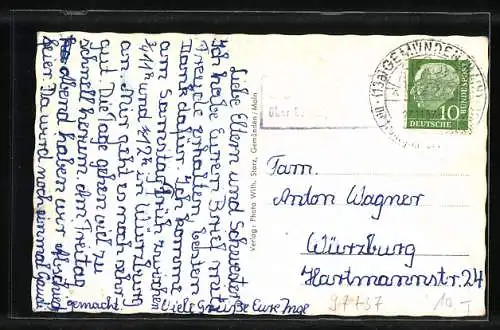 Liebe Eltern und Schwester
Ich habe Euren Brief mit
Freude erhalten besten
Dank dafür. Ich komme
am Samstag früh zwischen
1/2 11h und 1/2 12h in Würzburg
an. Mir geht es noch sehr
gut. Die Tage gehen viel zu
schnell herum. Am Freitag
Abend haben wir Abschieds
feier. Da wird noch einmal
gemacht. Viele Grüße Eure Inge
Verlag: Photo Wilh. Storz, Gemünden/Main
(13a) GEMÜNDEN
über
DEUTSCHE
BUNDESPOST
10
Fam.
Anton Wagner
Würzburg
Hartmannstr. 24
97737
10.-